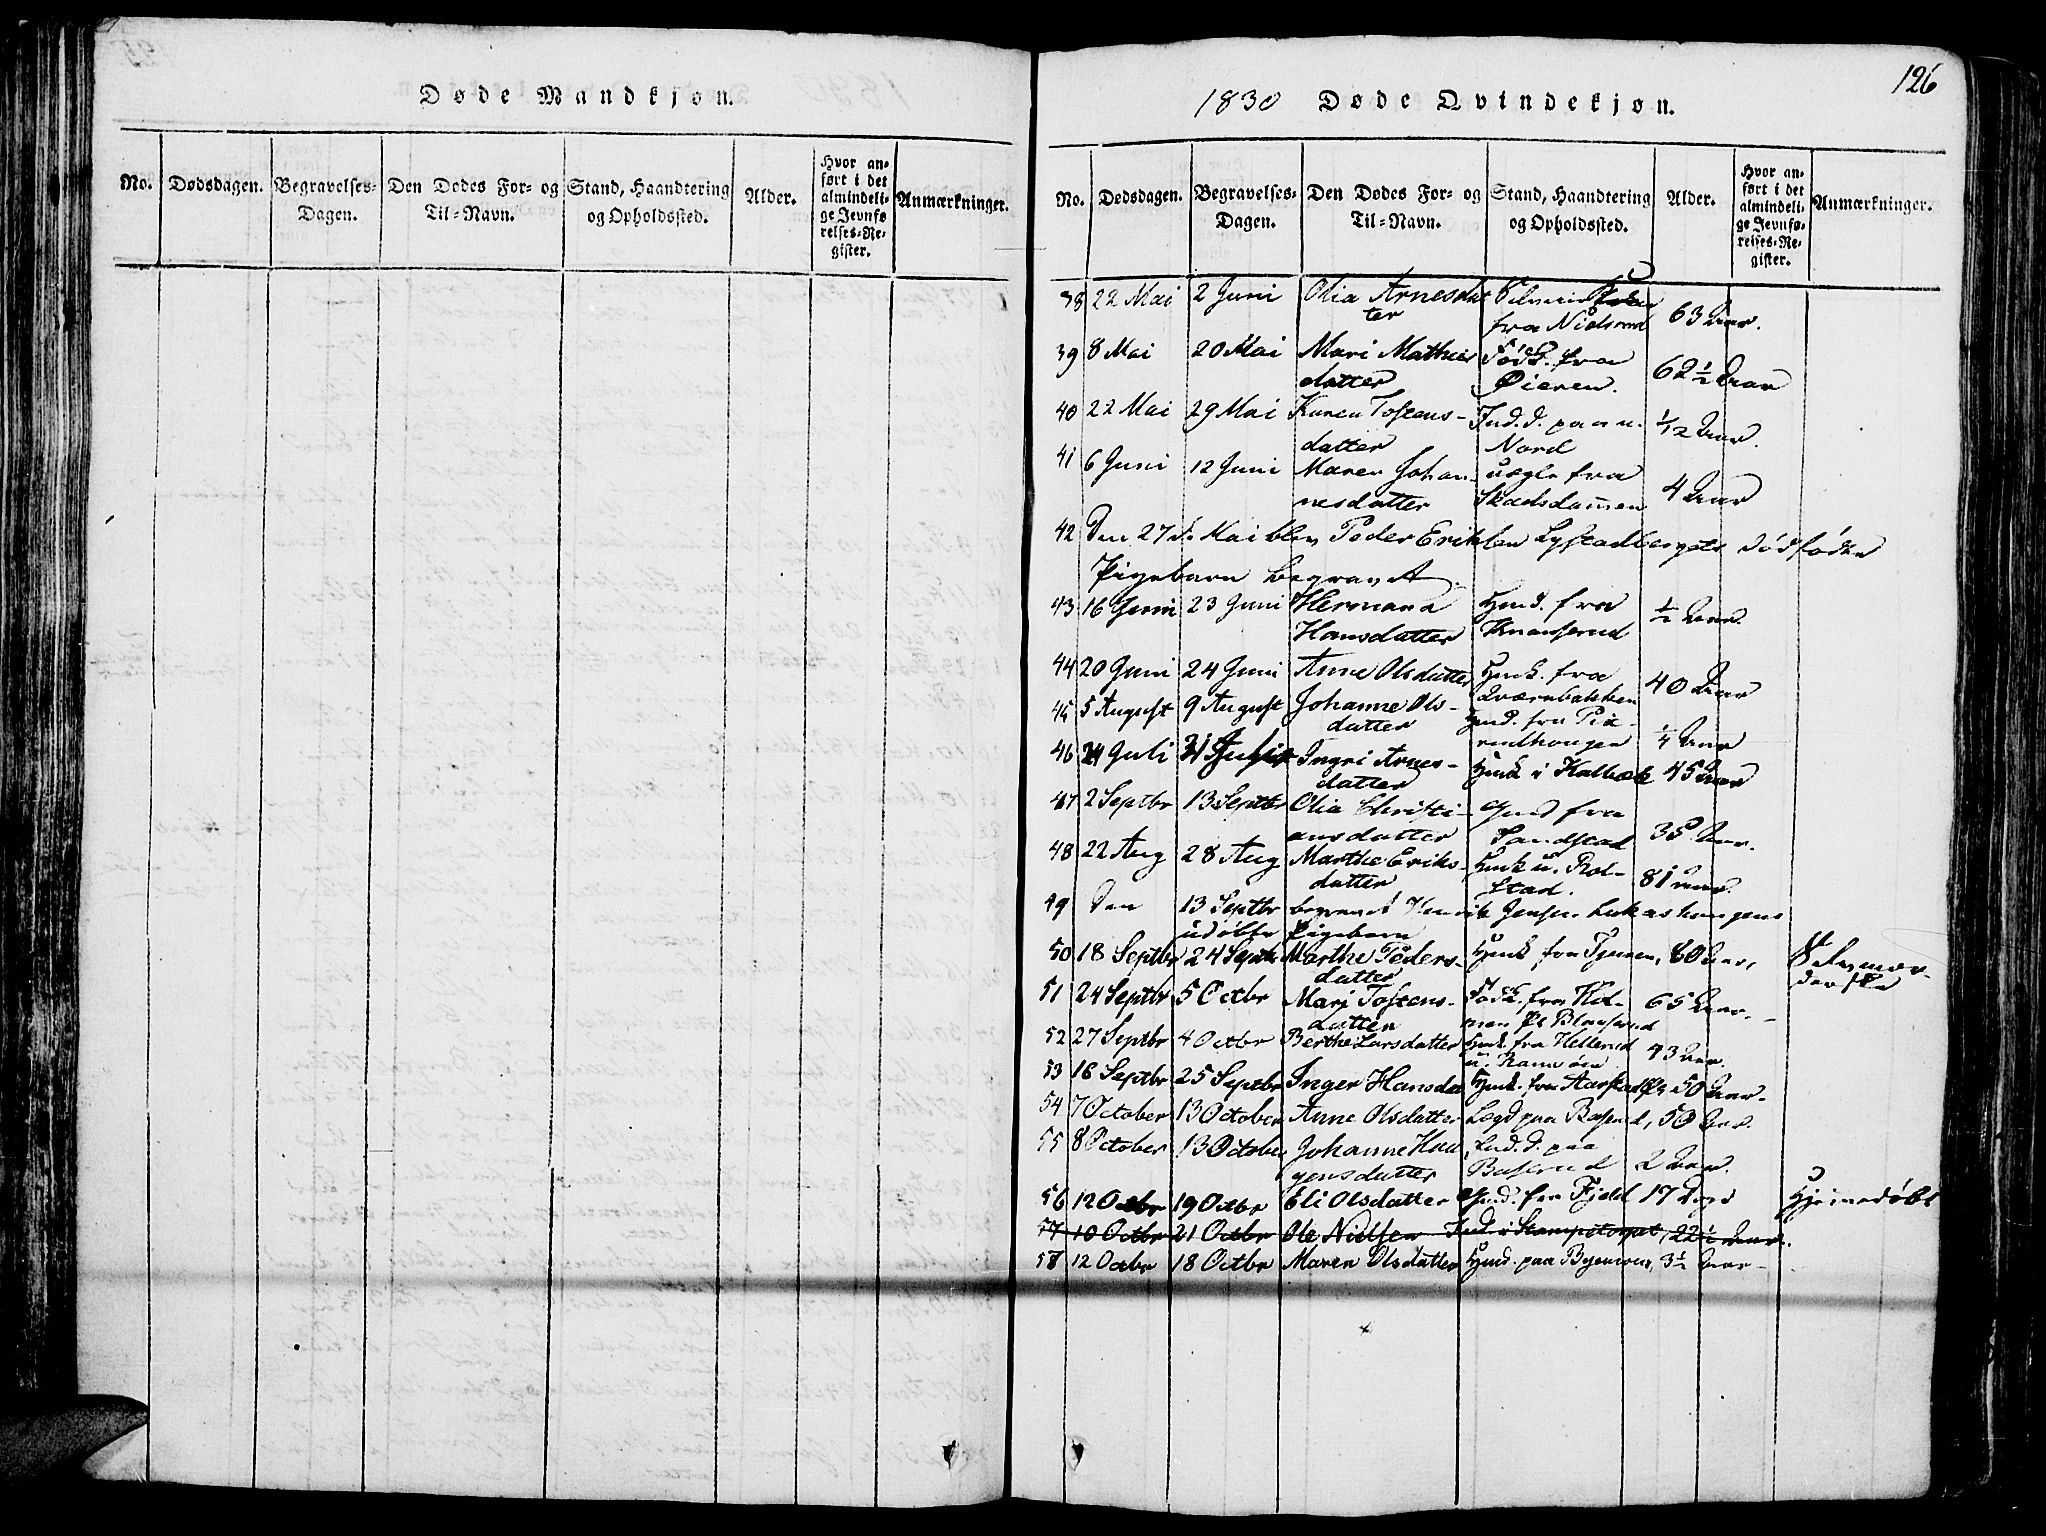 Døde Mandkjøn.
No.
Dødsdagen.
Begravelses-
Dagen.
Den Dødes For- og
Til-Navn.
Stand, Haandtering
og Opholdssted.
Alder.
Hvor an-
ført i det
almindeli-
ge Jevnfø
relses-Re-
gister.
Anmærkninger.
126
1830 Døde Qvindekjøn.
No.
Dødsdagen.
Begravelses-
Dagen.
Den Dødes For- og
Til-Navn.
Stand, Haandtering
og Opholdssted.
Alder.
Hvor an-
ført i det
almindeli-
ge Jevnfø-
relses-Re-
gister.
Anmærkninger.
38 22 Mai 2 Juni Olia Arnesdat
ter fra 63 Aar.
39 8 Mai 20 Mai Mari Mathies Fød. fra
datter Øieren. 62 1/2 Aar
40 22 Mai 29 Mai Karen Tostens- Ind. d. paa u.
datter Nord 1/12 Aar.
41 6 Juni 12 Juni Maren Johan- uægte fra
nesdatter Skadsdammen 4 Aar
42 Den 27 d. Mai blev Peder Eriksen Lystadbergets dødfødte
Pigebarn begravet.
43 16 Juni 23 Juni Hermana Huusd. fra
Hansdatter Knapserud 1/2 Aar.
44 20 Juni 24 Juni Anne Olsdatter Huusk. fra
Qværnbakken 40 Aar
45 5 August 9 August Johanne Ols- Huusd. fra
datter 1/4 Aar
46 24 Juli 31 Juli Ingri Arnes- Huusk i Kalbæk 45 Aar
datter
47 2 Septbr 13 Septbr Olia Christi- Gmd fra
ansdatter Sandstad 35 Aar.
48 22 Aug 28 Aug Marthe Eriks- Huusk u. Rol-
datter stad. 81 Aar.
49 Den 13 Septbr begravet Henrik Jensen Lukashaugens
udøbte Pigebarn
50 18 Septbr 24 Septbr Marthe Peders- Huusk fra Tjernen, 60 Aar,
datter
51 24 Septbr 5 Octbr Mari Tostens- Føk. fra Hol-
datter 65 Aar.
52 27 Septbr 4 Octbr Berthe Larsdatter Huusk. fra Hellerud
43 Aar.
53 16 Septbr 25 Septbr Inger Hansda Huusk. fra Aarstad 50 Aar.
54 7 October 13 October Anne Olsdatter Lægd paa Baserud, 50 Aar.
55 8 October 13 October Johanne Haa Ind. d. paa
gensdatter Baserud 2 Aar.
56 12 Octbr 19 Octbr Eli Olsdatter Gmd. fra Fjeld 17 Dage Hjemmedøbt
57 10 Octbr 21 Octbr Ole Nielsen Ind. i Stampetorpet, 22 1/2 Aar.
58 12 Octbr 18 Octbr Maren Olsdatter Huusd. paa 3 1/2 Aar